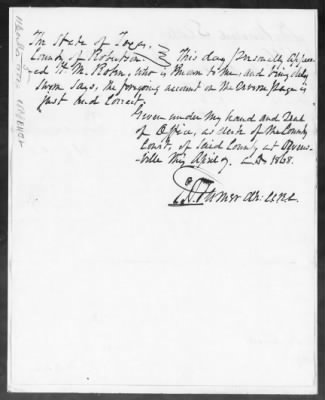 The State of Texas
County of Robertson } This day personally appear
ed W. M. Rohn, who is known to me, and being duly
sworn says, the foregoing account on the reverse page is
just and correct.
Given under my hand and Seal
of Office, as clerk of the County
Court, of said County at Owens-
ville this April 9. AD 1868.
Turner